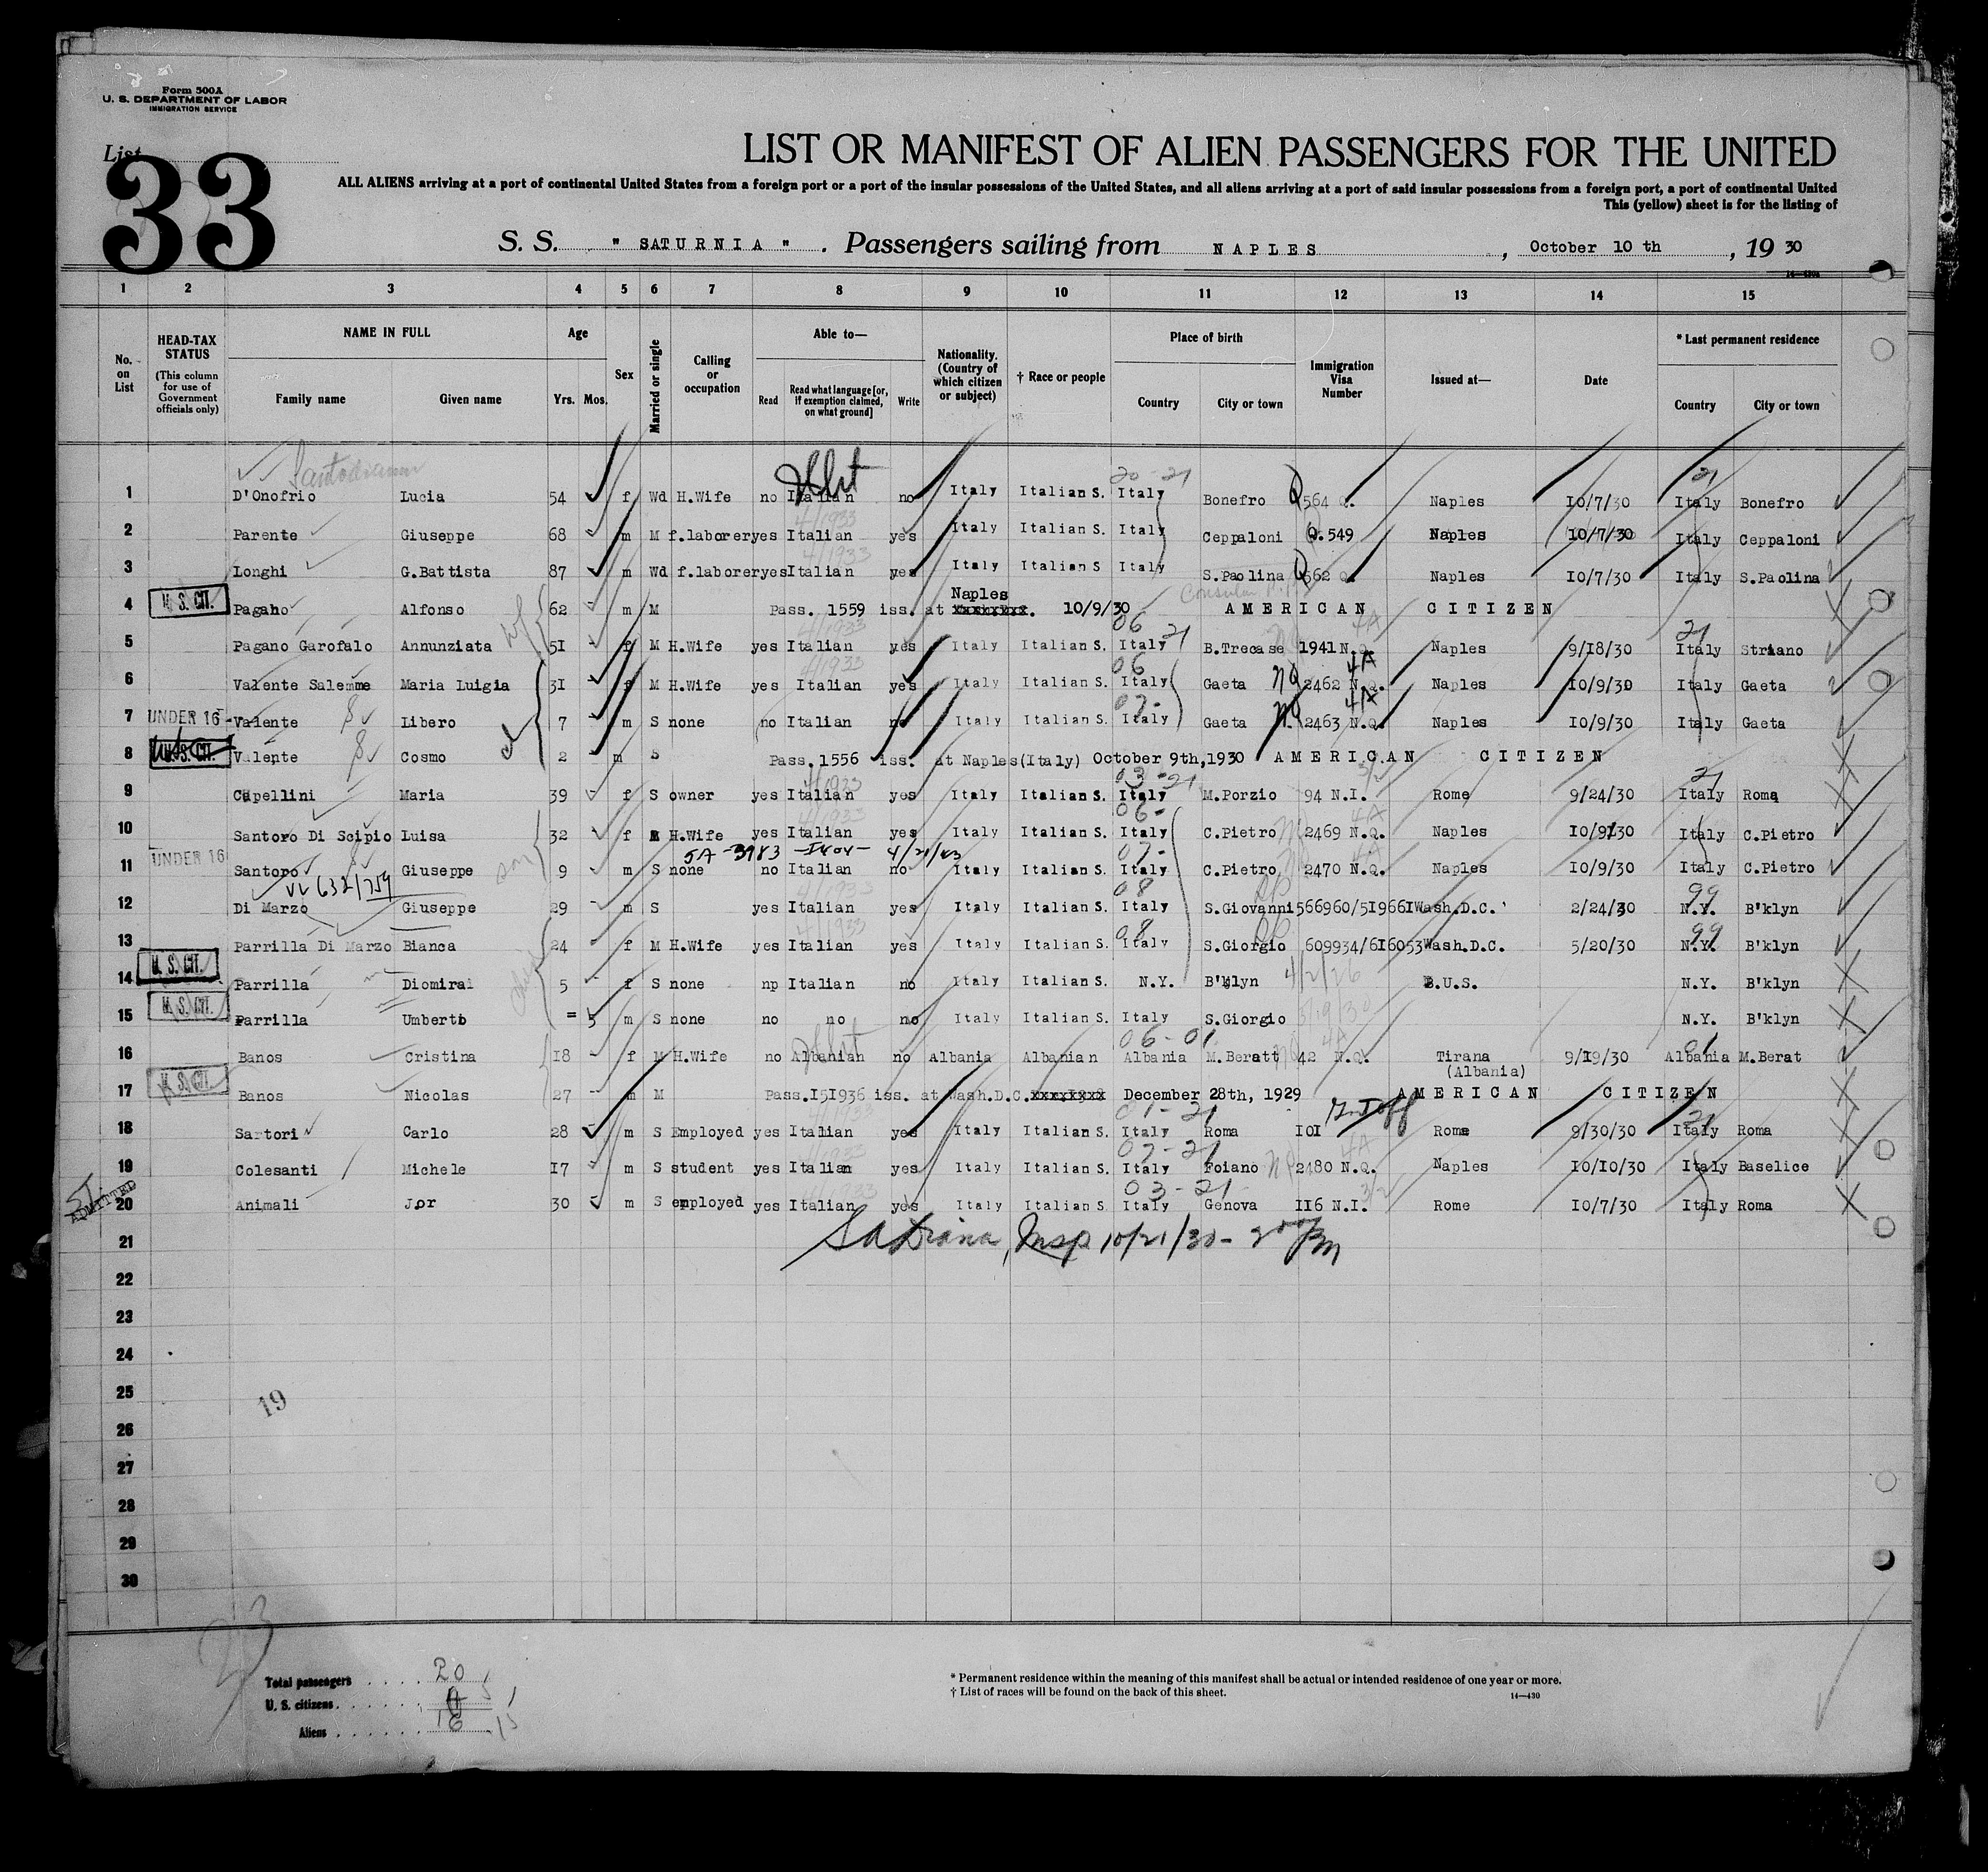 Form 500A
U. S. DEPARTMENT OF LABOR
IMMIGRATION SERVICE
List
33
LIST OR MANIFEST OF ALIEN PASSENGERS FOR THE UNITED
ALL ALIENS arriving at a port of continental United States from a foreign port or a port of the insular possessions of the United States, and all aliens arriving at a port of said insular possessions from a foreign port, a port of continental United
This (yellow) sheet is for the listing of
S. S. " SATURNIA " . Passengers sailing from NAPLES , October 10 th , 19 30
1 2 3 4 5 6 7 8 9 10 11 12 13 14 15
No. on List
HEAD-TAX STATUS (This column for use of Government officials only)
NAME IN FULL Family name Given name
Age Yrs. Mos.
Sex
Married or single
Calling or occupation
Able to— Read Read what language [or, if exemption claimed, on what ground] Write
Nationality. (Country of which citizen or subject)
† Race or people
Place of birth Country City or town
Immigration Visa Number
Issued at—
Date
* Last permanent residence Country City or town
20-21 21
1 D'Onofrio Lucia 54 f Wd H.Wife no Italian no Italy Italian S. Italy Bonefro Q 564 Q. Naples 10/7/30 Italy Bonefro
4/1933
2 Parente Giuseppe 68 m M f.laborer yes Italian yes Italy Italian S. Italy Ceppaloni Q.549 Naples 10/7/30 Italy Ceppaloni
4/1933
3 Longhi G.Battista 87 m Wd f.laborer yes Italian yes Italy Italian S Italy S.Paolina Q 562 Q. Naples 10/7/30 Italy S.Paolina
Naples
4 U. S. CIT. Pagano Alfonso 62 m M Pass. 1559 iss. at xxxxxxxx. 10/9/30 AMERICAN CITIZEN
4/1933 06 21 4A 21
5 Pagano Garofalo Annunziata 51 f M H.Wife yes Italian yes Italy Italian S. Italy B.Trecase 1941 N.Q. Naples 9/18/30 Italy Striano
4/1933 06 4A
6 Valente Salemme Maria Luigia 31 f M H.Wife yes Italian yes Italy Italian S. Italy Gaeta NQ 2462 N.Q. Naples 10/9/30 Italy Gaeta
07- 4A
7 UNDER 16 Valente Libero 7 m S none no Italian no Italy Italian S. Italy Gaeta 2463 N.Q. Naples 10/9/30 Italy Gaeta
8 U. S. CIT. Valente Cosmo 2 m S Pass. 1556 iss. at Naples(Italy) October 9th,1930 AMERICAN CITIZEN
4/1933 03-21 3/2 21
9 Capellini Maria 39 f S owner yes Italian yes Italy Italian S. Italy M.Porzio 94 N.I. Rome 9/24/30 Italy Roma
4/1933 06- 4A
10 Santoro Di Scipio Luisa 32 f M H.Wife yes Italian yes Italy Italian S. Italy C.Pietro NQ 2469 N.Q. Naples 10/9/30 Italy C.Pietro
5A-3983 4/21/43 07- 4A
11 UNDER 16 Santoro Giuseppe 9 m S none no Italian no Italy Italian S. Italy C.Pietro 2470 N.Q. Naples 10/9/30 Italy C.Pietro
632/759 4/1933 08 RP 99
12 Di Marzo Giuseppe 29 m S yes Italian yes Italy Italian S. Italy S.Giovanni 566960/519661 Wash.D.C. 2/24/30 N.Y. B'klyn
4/1933 08 RP 99
13 Parrilla Di Marzo Bianca 24 f M H.Wife yes Italian yes Italy Italian S. Italy S.Giorgio 609934/616053 Wash.D.C. 5/20/30 N.Y. B'klyn
14 U. S. CIT. Parrilla Diomira 5 f S none np Italian no Italy Italian S. N.Y. B'klyn 4/2/26 B.U.S. N.Y. B'klyn
15 U. S. CIT. Parrilla Umberto = 5 m S none no no no Italy Italian S. Italy S.Giorgio N.Y. B'klyn
06-01 4A 01
16 Banos Cristina 18 f M H.Wife no Albanian no Albania Albanian Albania M.Beratt 42 N.Q. Tirana 9/19/30 Albania M.Berat
(Albania)
17 U. S. CIT. Banos Nicolas 27 m M Pass.151936 iss. at Wash.D.C. xxxxxxxx December 28th, 1929 AMERICAN CITIZEN
4/1933 01-21 21
18 Sartori Carlo 28 m S Employed yes Italian yes Italy Italian S. Italy Roma 101 Rome 9/30/30 Italy Roma
4/1933 07-21 4A
19 Colesanti Michele 17 m S student yes Italian yes Italy Italian S. Italy Foiano NQ 2480 N.Q. Naples 10/10/30 Italy Baselice
ADMITTED 4/1933 03-21 3/2
20 Animali Jor 30 m S employed yes Italian yes Italy Italian S. Italy Genova 116 N.I. Rome 10/7/30 Italy Roma
21 Insp 10/21/30-
22
23
24
25
19
26
27
28
29
30
23
Total passengers 20
U. S. citizens 5
Aliens 16 15
* Permanent residence within the meaning of this manifest shall be actual or intended residence of one year or more.
† List of races will be found on the back of this sheet.
14—430